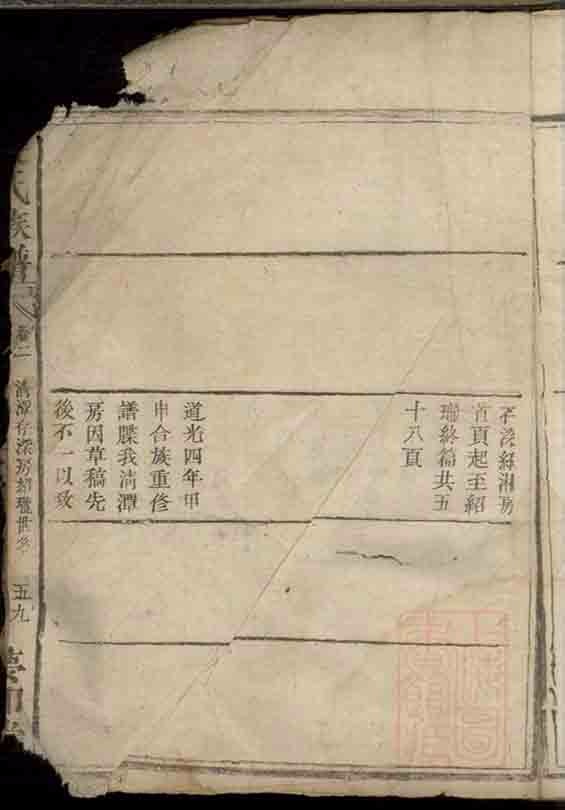 存深經湘房
首頁起至紹
瑞終篇共五
十八頁
道光四年甲
申合族重修
譜牒我淸潭
房因草稿先
後不一以致
氏族譜
卷二
淸潭存深房紹瓏世系
五九